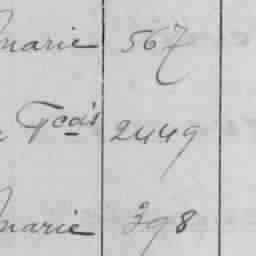 marie 567
Fcois 2449
marie 398